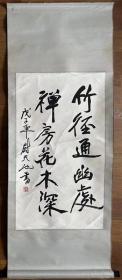 竹径通幽處
禅房花木深
戊子年
書